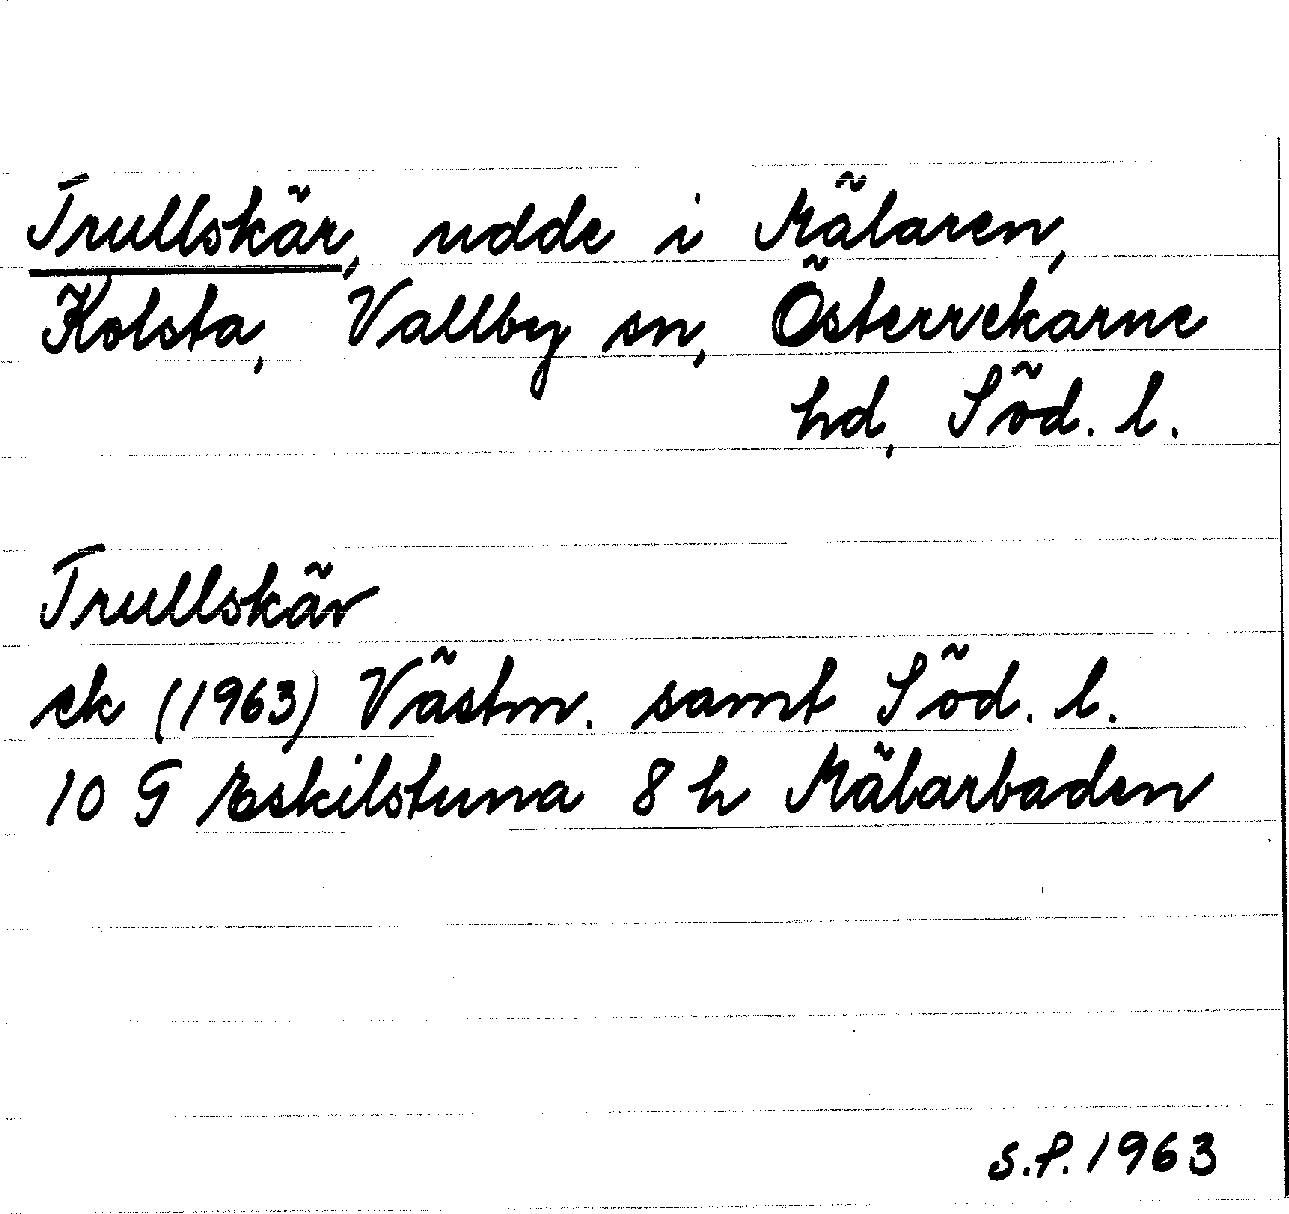 Trullskär, udde i Mälaren,
Kolsta, Vallby sn, Österrekarne
hd, Söd. l.
Trullskär
ek (1963) Västm. samt Söd. l.
10 G Eskilstuna 8 h Mälarbaden
S.P. 1963